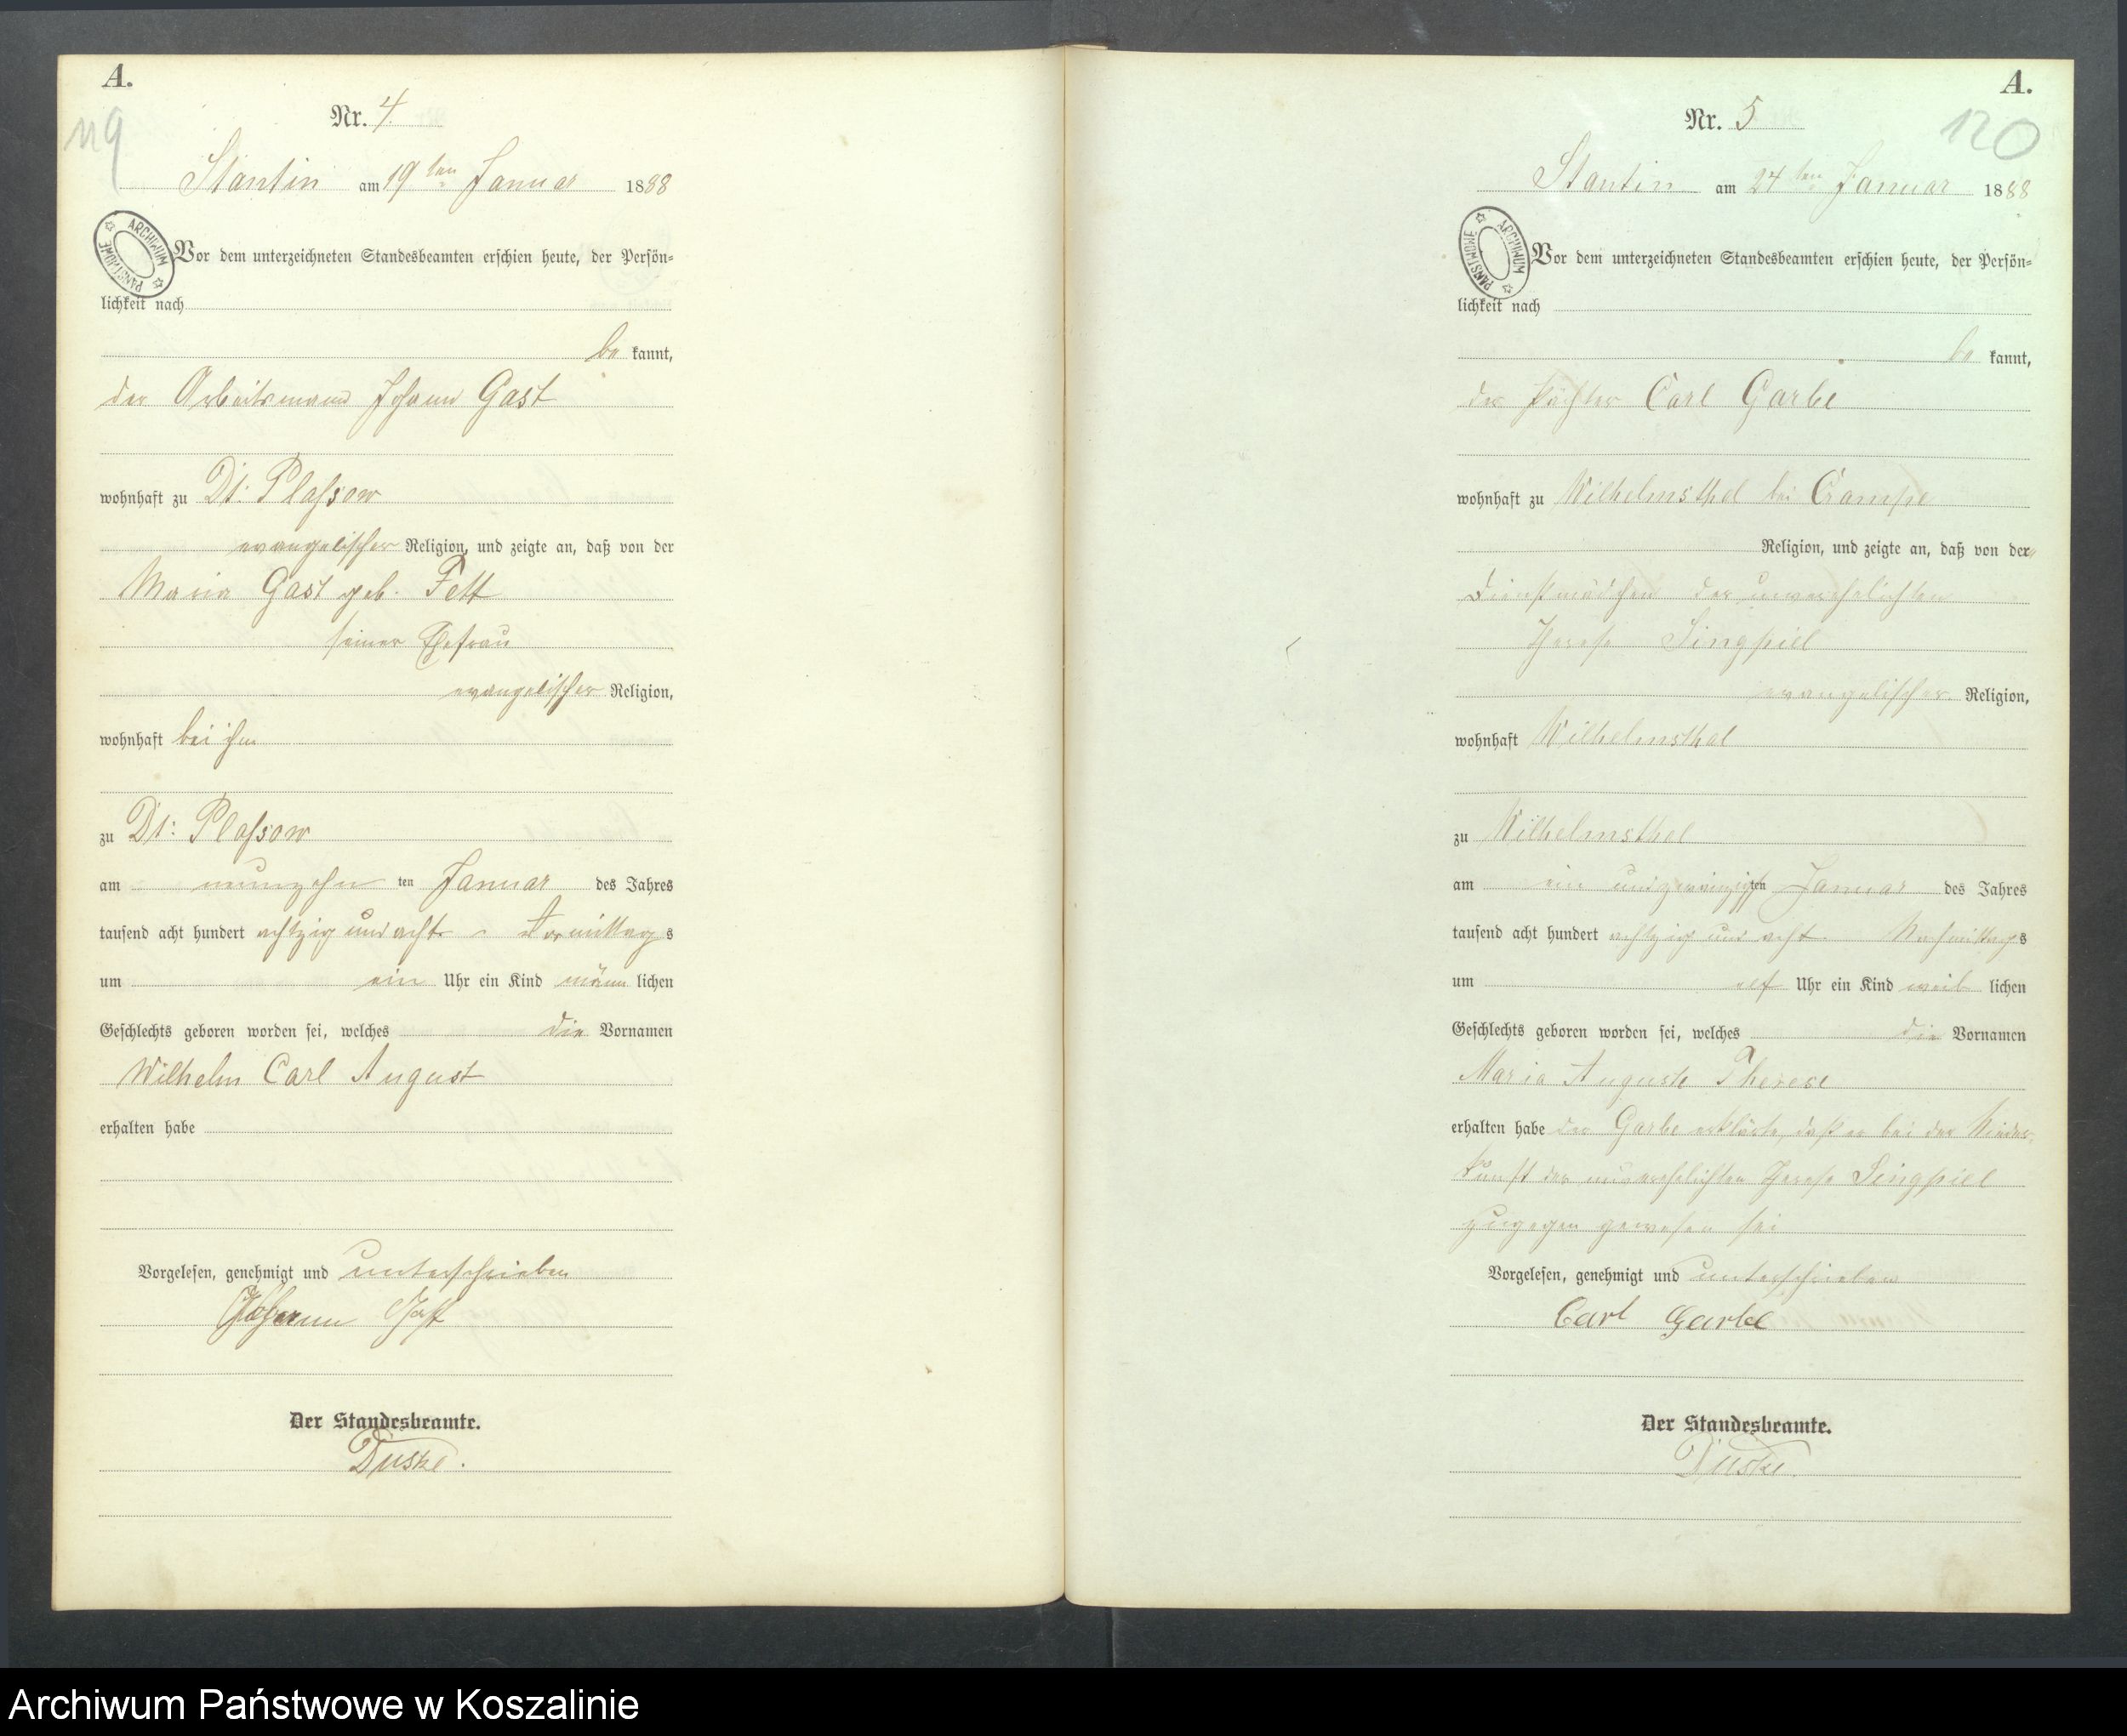 A.
119
Nr. 4.
Stantin am 19ten Januar 1888
ARCHIWUM PAŃSTWOWE
Vor dem unterzeichneten Standesbeamten erschien heute, der Persön=
lichkeit nach
be kannt,
der Arbeitsmann Johann Gast
wohnhaft zu Dt: Plassow
evangelischer Religion, und zeigte an, daß von der
Maria Gast geb. Fett
seiner Ehefrau
evangelischer Religion,
wohnhaft bei ihm
zu Dt: Plassow
am neunzehn ten Januar des Jahres
tausend acht hundert achtzig und acht Vormittags
um ein Uhr ein Kind männ lichen
Geschlechts geboren worden sei, welches die Vornamen
Wilhelm Carl August
erhalten habe
Vorgelesen, genehmigt und unterschrieben
Johann Gast
Der Standesbeamte.
Duske.
A.
120
Nr. 5
Stantin am 24ten Januar 1888
ARCHIWUM PAŃSTWOWE
Vor dem unterzeichneten Standesbeamten erschien heute, der Persön=
lichkeit nach
be kannt,
der Pächter Carl Garbe
wohnhaft zu Wilhelmsthal bei Crampe
Religion, und zeigte an, daß von der
Dienstmädchen der unverehelichten
Therese Singpiel
evangelischer Religion,
wohnhaft Wilhelmsthal
zu Wilhelmsthal
am ein und zwanzigsten Januar des Jahres
tausend acht hundert achtzig und acht Nachmittags
um elf Uhr ein Kind weib lichen
Geschlechts geboren worden sei, welches die Vornamen
Maria Auguste Therese
erhalten habe der Garbe erklärte, daß er bei der Nieder=
kunft der unverehelichten Therese Singpiel
zugegen gewesen sei
Vorgelesen, genehmigt und unterschrieben
Carl Garbe
Der Standesbeamte.
Duske.
Archiwum Państwowe w Koszalinie